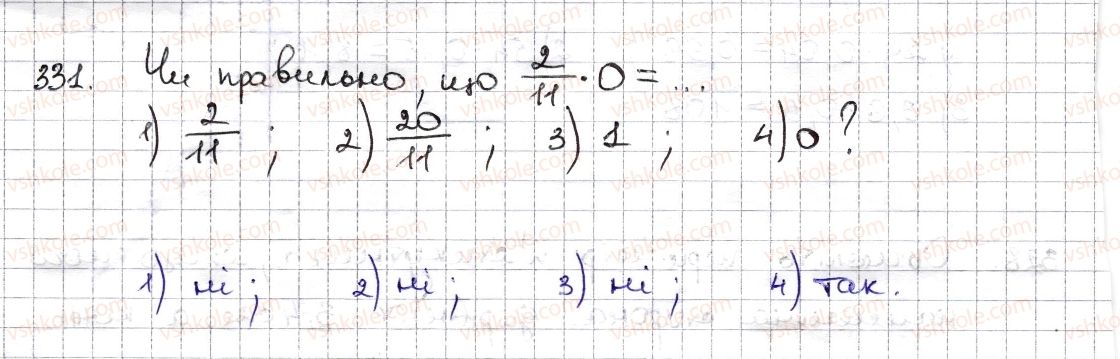 331. Чи правильно, що 2/11 · 0 = ...
1) 2/11 ; 2) 20/11 ; 3) 1 ; 4) 0 ?
1) ні ; 2) ні ; 3) ні ; 4) так.